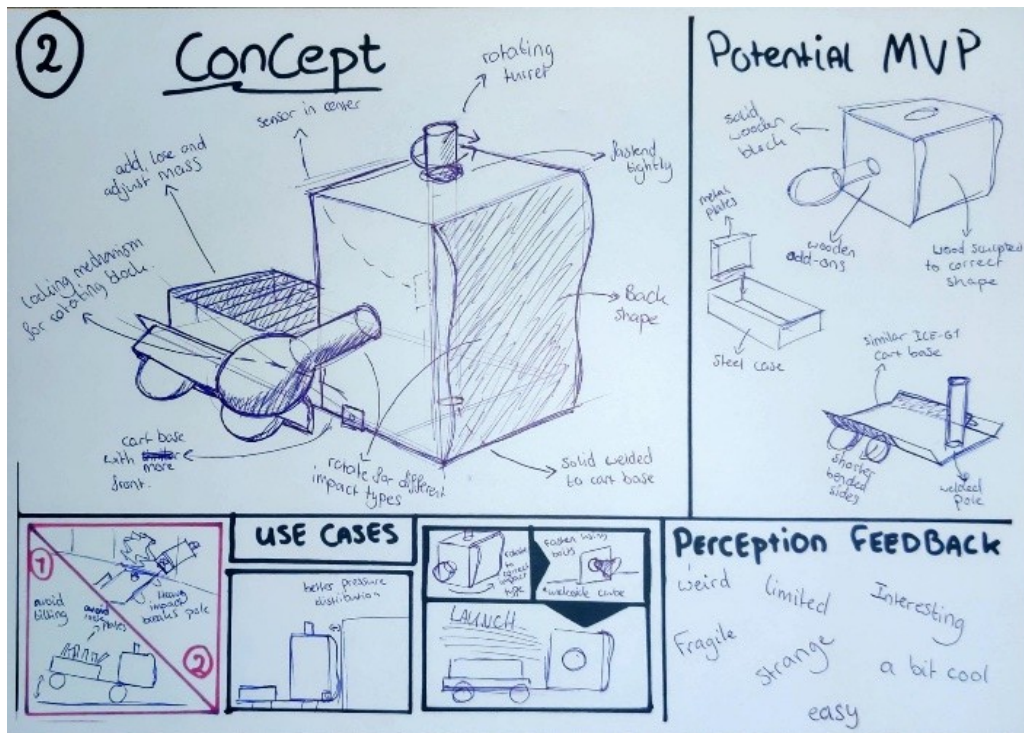 2
Concept
rotating
turret
sensor in center
add, lose and
adjust mass
fastend
tightly
locking mechanism
for rotating block
Back
shape
cart base
with more
front.
rotate for different
impact types
solid welded
to cart base
Potential MVP
solid
wooden
block
metal
plates
wooden
add-ons
wood sculpted
to correct
shape
steel case
similar ICE-G1
cart base
shorter
bended
sides
welded
pole
1
avoid
tilting
avoid
Heavy
impact
breaks pole
2
USE CASES
better pressure
distribution
rotate
to
correct impact
type
fasten using
bolts
LAUNCH
PERCEPTION FEEDBACK
weird
limited
Interesting
Fragile
strange
a bit cool
easy